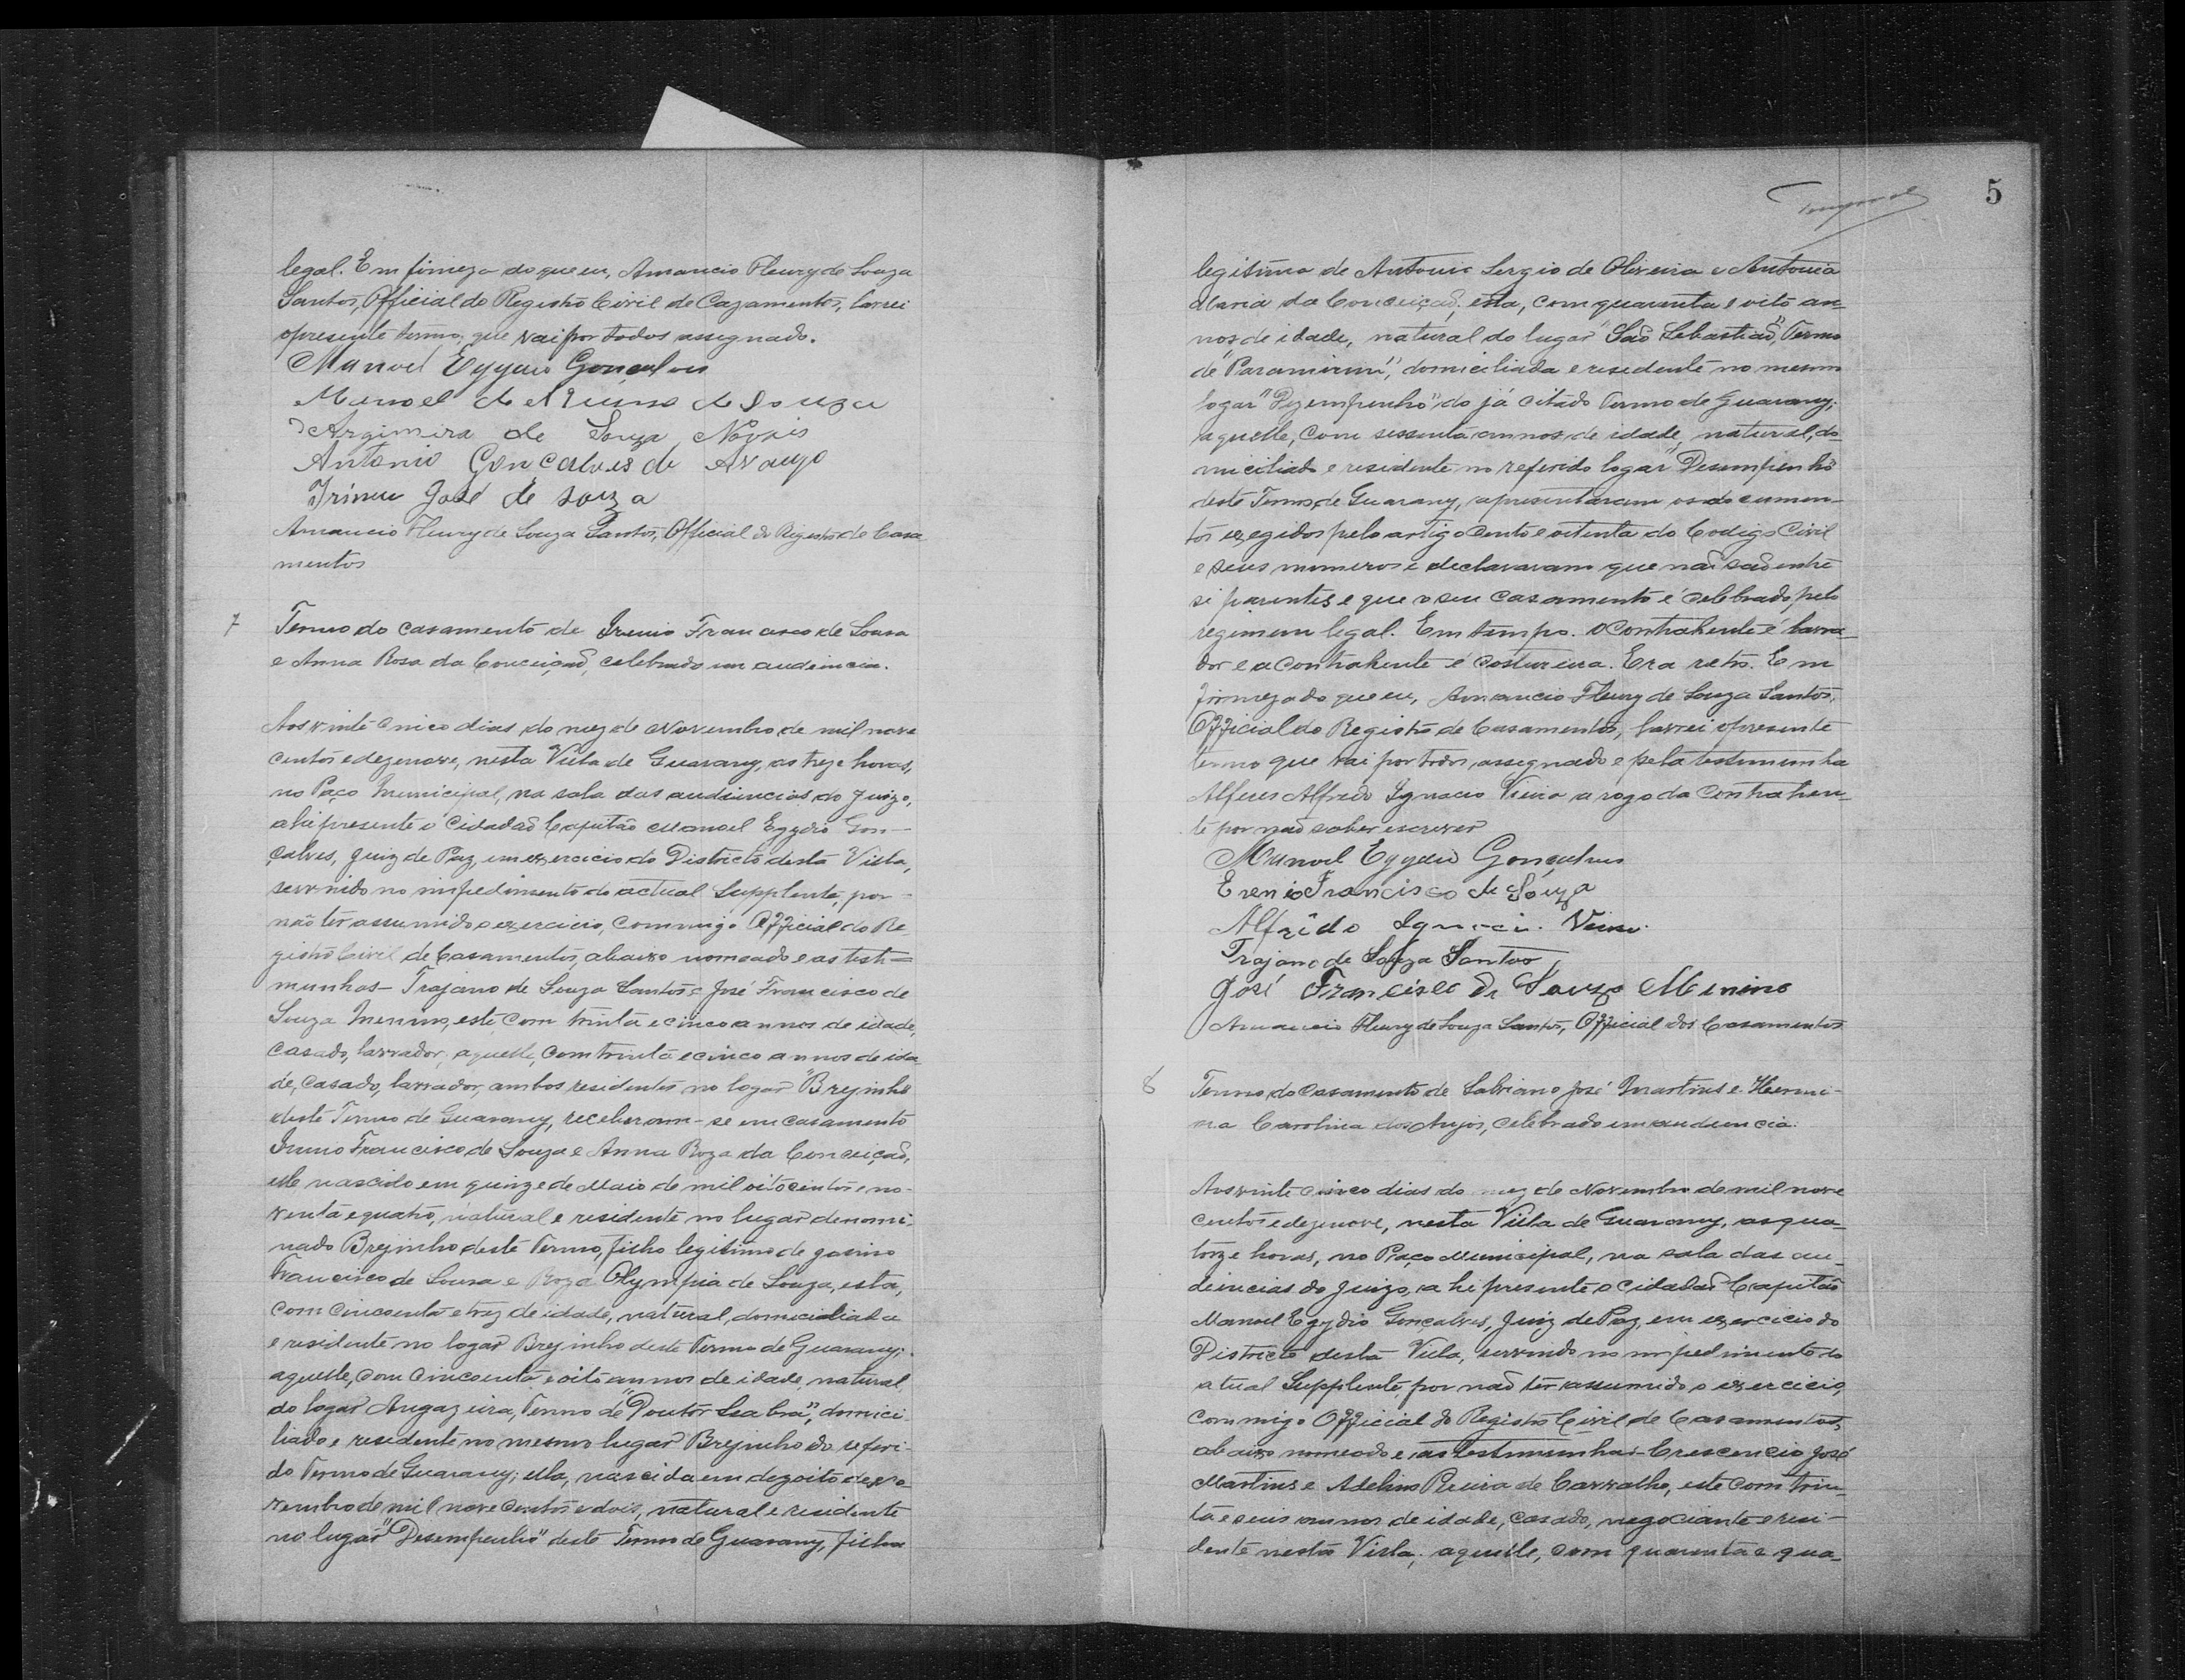 legal. Em firmeza do que eu, Amancio Fleury de Souza
Santos, Official do Registro Civil de Cazamentos, lavrei
o presente termo, que vai por todos assignado.
Manoel Egydio Gonçalves
Manoel de Souza
Argimira de Souza Novais
Antonio Goncalves de Araujo
Irineu José de Souza
Amancio Fleury de Souza Santos, Official do Registro de Casa
mentos
7 Termo do casamento de Irenio Francisco de Sousa
e Anna Rosa da Conceição, celebrado em audiencia.
Aos vinte cinco dias do mez de Novembro de mil nove
centos e dezenove, nesta Villa de Guarany, as treze horas,
no Paço Municipal, na sala das audiencias do Juizo,
ahi presente o Cidadão Capitão Manoel Egydio Gon-
çalves, Juiz de Paz, em exercicio do Districto desta Villa,
servindo no impedimento do actual Supplente, por
não ter assumido o exercicio, commigo Official do Re
gistro Civil de Casamentos, abaixo nomeado e as teste=
munhas - Trajano de Souza Santos e José Francisco de
Souza Menino, este com trinta e cinco annos de idade,
casado, lavrador, aquelle, com trinta e cinco annos de ida
de, casado, lavrador, ambos residentes no logar "Brejinho"
deste Termo de Guarany, receberam-se em casamento
Irenio Francisco de Souza e Anna Roza da Conceição,
elle nascido em quinze de Maio de mil oitocentos e no-
venta e quatro, natural e residente no lugar denomi-
nado Brejinho deste Termo, filho legitimo de
Francisco de Sousa e Roza Olympia de Souza, esta,
com cincoenta e trez de idade, natural, domiciliada
e residente no logar Brejinho deste Termo de Guarany;
aquelle, com cincoenta e oito annos de idade, natural
do logar Angazeira, Termo de "Doutor Seabra", domici-
liado e residente no mesmo lugar Brejinho do referi-
do Termo de Guarany; ella, nascida em dezoito de No-
vembro de mil nove centos e dois, natural e residente
no lugar "Desempenho" deste Termo de Guarany, filha
5
legitima de Antonio Sergio de Oliveira e Antonia
Maria da Conceição, esta, com quarenta e oito an-
nos de idade, natural do lugar "São Sebastião", Termo
de "Paramirim", domiciliada e residente no mesmo
logar "Dezempenho" do já citado Termo de Guarany;
aquelle, com sessenta annos de idade, natural, do-
miciliado e residente no referido logar "Desempenho"
deste Termo de Guarany, apresentaram os documen-
tos exegidos pelo artigo cento e oitenta do Codigo Civil
e seus numeros e declararam que não são entre
si parentes e que o seu casamento é celebrado pelo
regimem legal. Em tempo. O Contrahente é lavra-
dor e a Contrahente é costureira. Era retro. Em
firmeza do que eu, Amancio Fleury de Souza Santos,
Official do Registro de Casamentos, lavrei o presente
termo que vai por todos assignado e pela testemunha
Alferes Alfredo Ignacio Vieira a rogo da Contrahen-
te por não saber escrever
Manoel Egydio Gonçalves
Erenio Francisco de Souza
Alfrêdo Ignacio Vieira.
Trajano de Souza Santos
José Francisco de Souza Menino
Amancio Fleury de Souza Santos, Official dos Casamentos
8 Termo do Casamento de Salviano José Martins e Hermi-
na Carolina dos Anjos, celebrado em audiencia.
Aos vinte cinco dias do mez de Novembro de mil nove
centos e dezenove, nesta Villa de Guarany, as qua-
torze horas, no Paço Municipal, na sala das au-
diencias do Juizo, ahi presente o Cidadão Capitão
Manoel Egydio Gonçalves, Juiz de Paz, em exercicio do
Districto desta Villa, servindo no impedimento do
atual Supplente, por não ter assumido o exercicio,
commigo Official do Registro Civil de Casamentos,
abaixo nomeado e as testemunhas - Crescencio José
Martins e Adelino Pereira de Carvalho, este com trin-
ta e seis annos de idade, casado, negociante e resi-
dente nesta Villa, aquelle, com quarenta e qua-